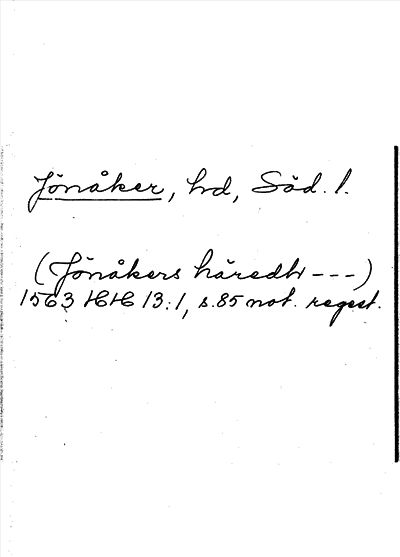 Jönåker, hd, Söd. l.
(Jönåkers häredh ---)
1563 HH 13:1, s. 85 not. regest.